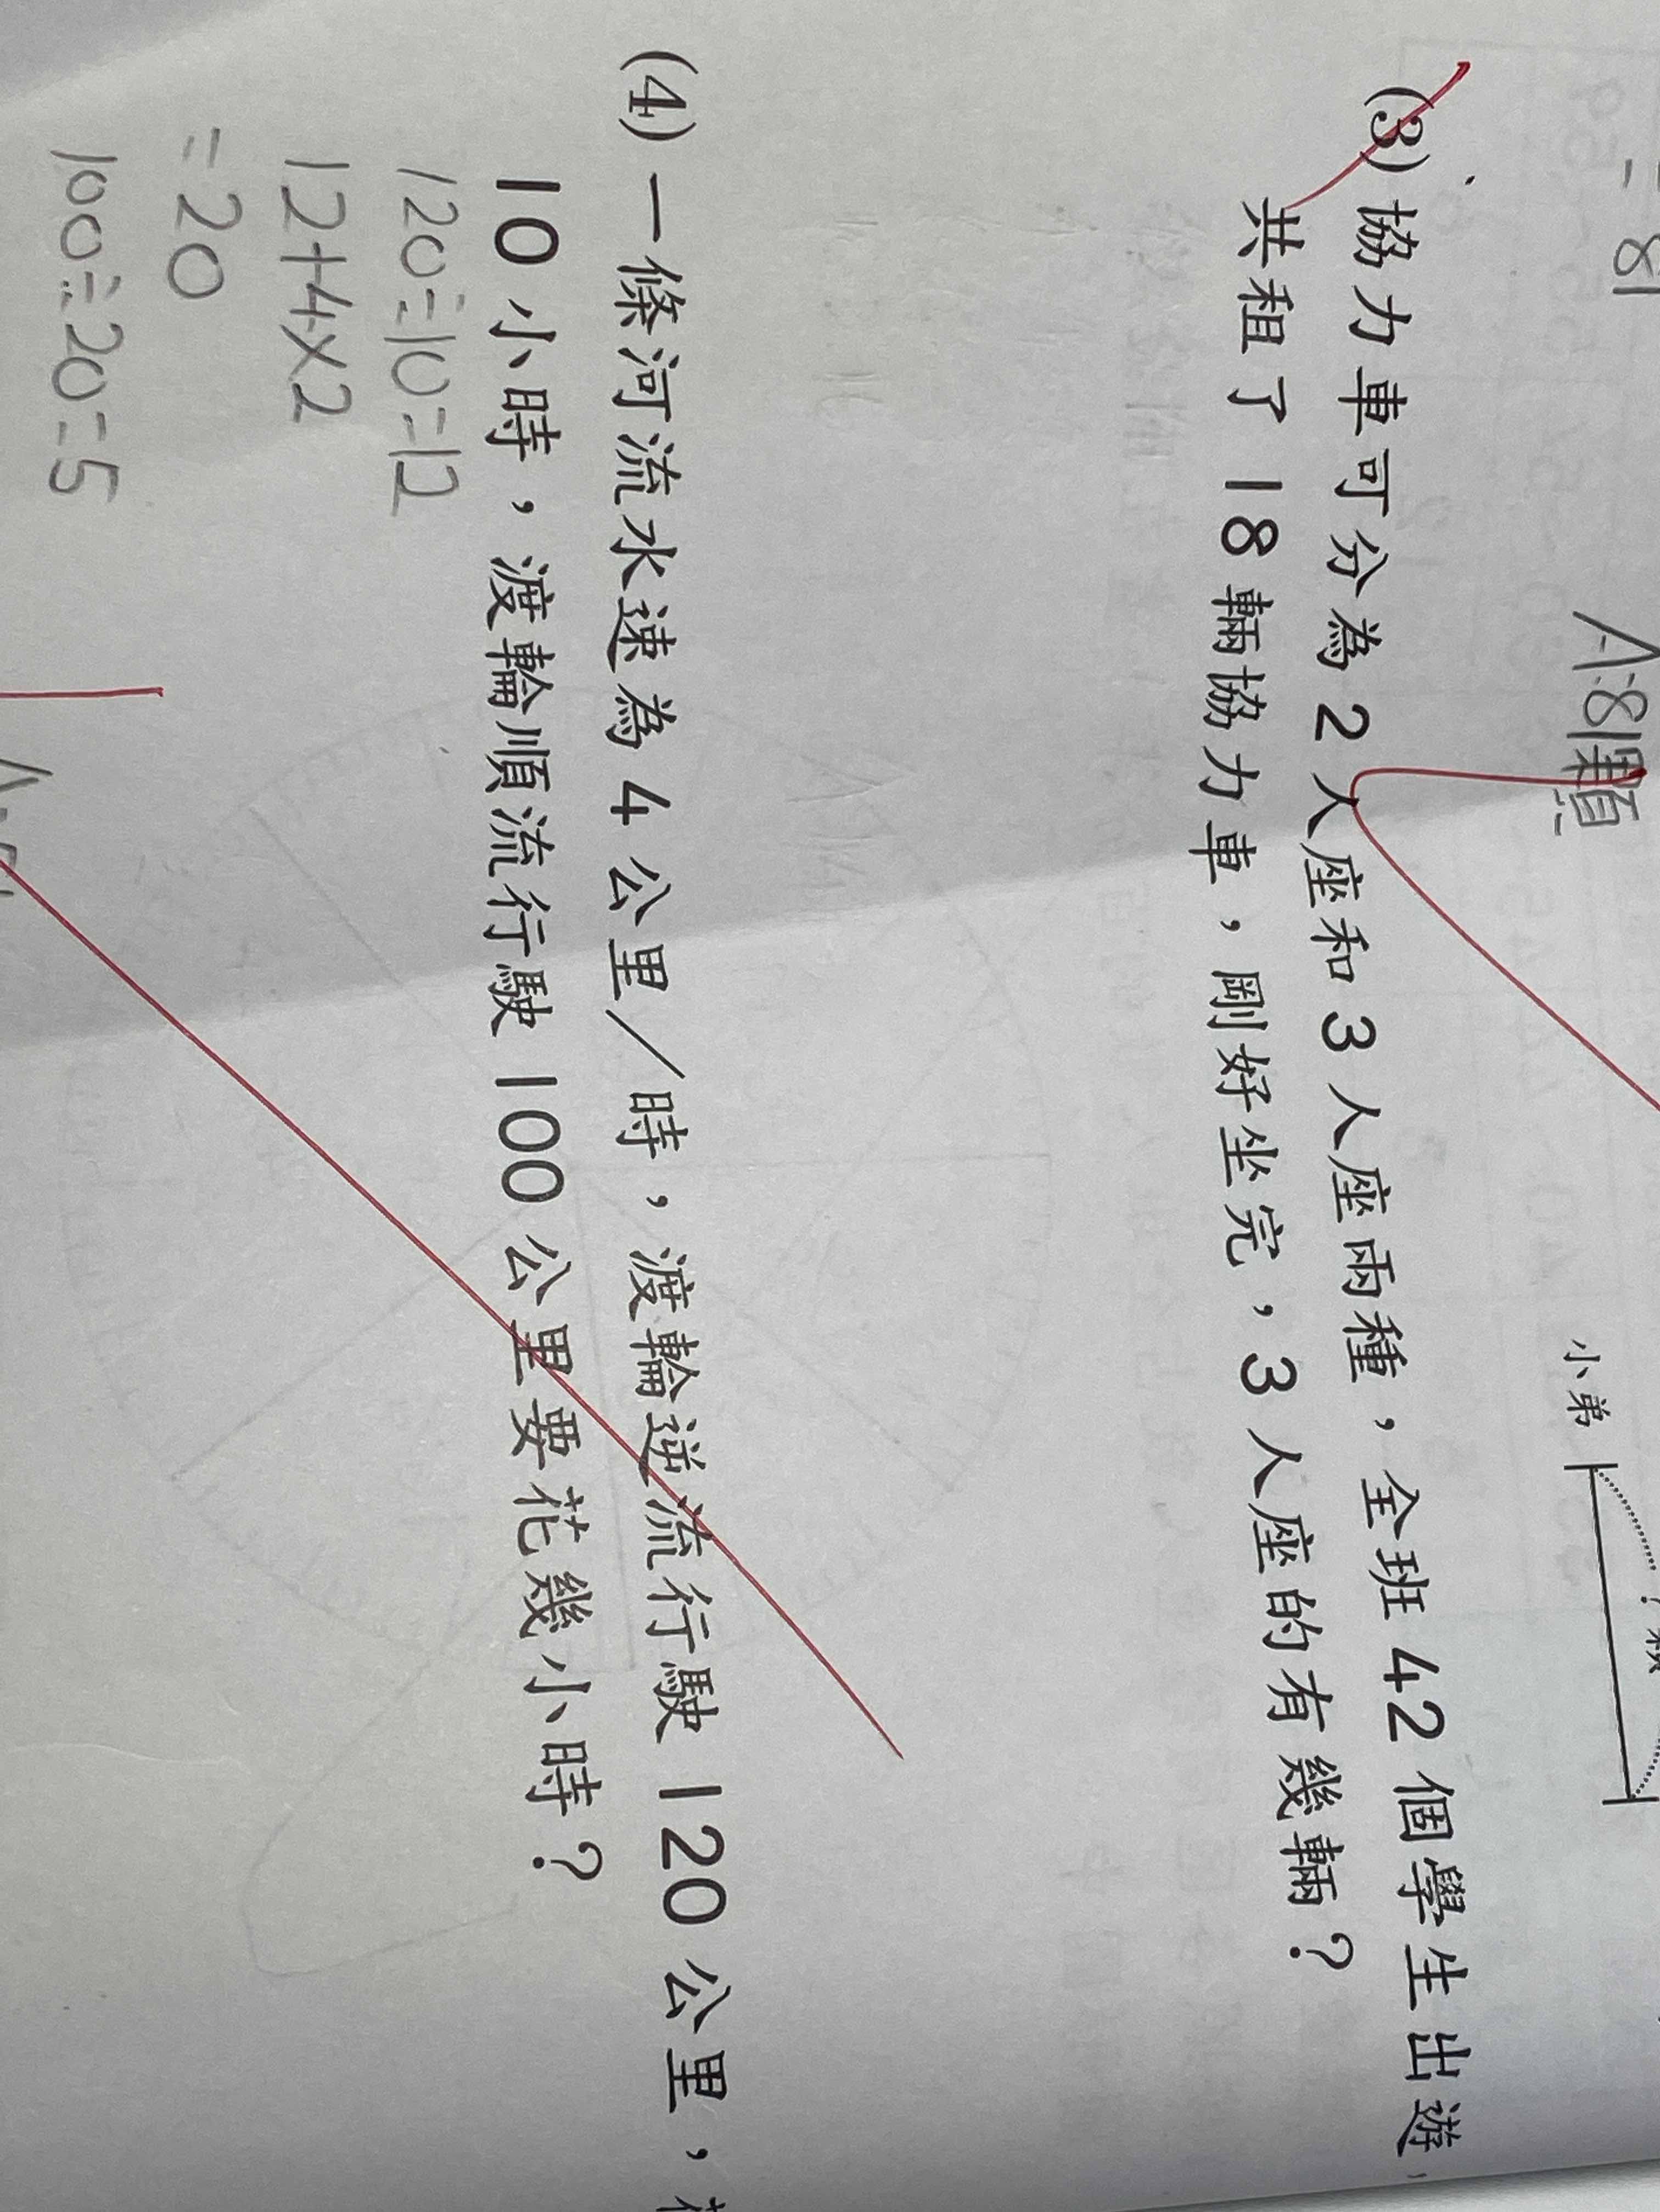 =81
A:81顆
小弟
？顆
(3) 協力車可分為 2 人座和 3 人座兩種，全班 42 個學生出遊，
共租了 18 輛協力車，剛好坐完，3 人座的有幾輛？
(4) 一條河流水速為 4 公里／時，渡輪逆流行駛 120 公里，
10 小時，渡輪順流行駛 100 公里要花幾小時？
120÷10=12
12+4×2
=20
100÷20=5